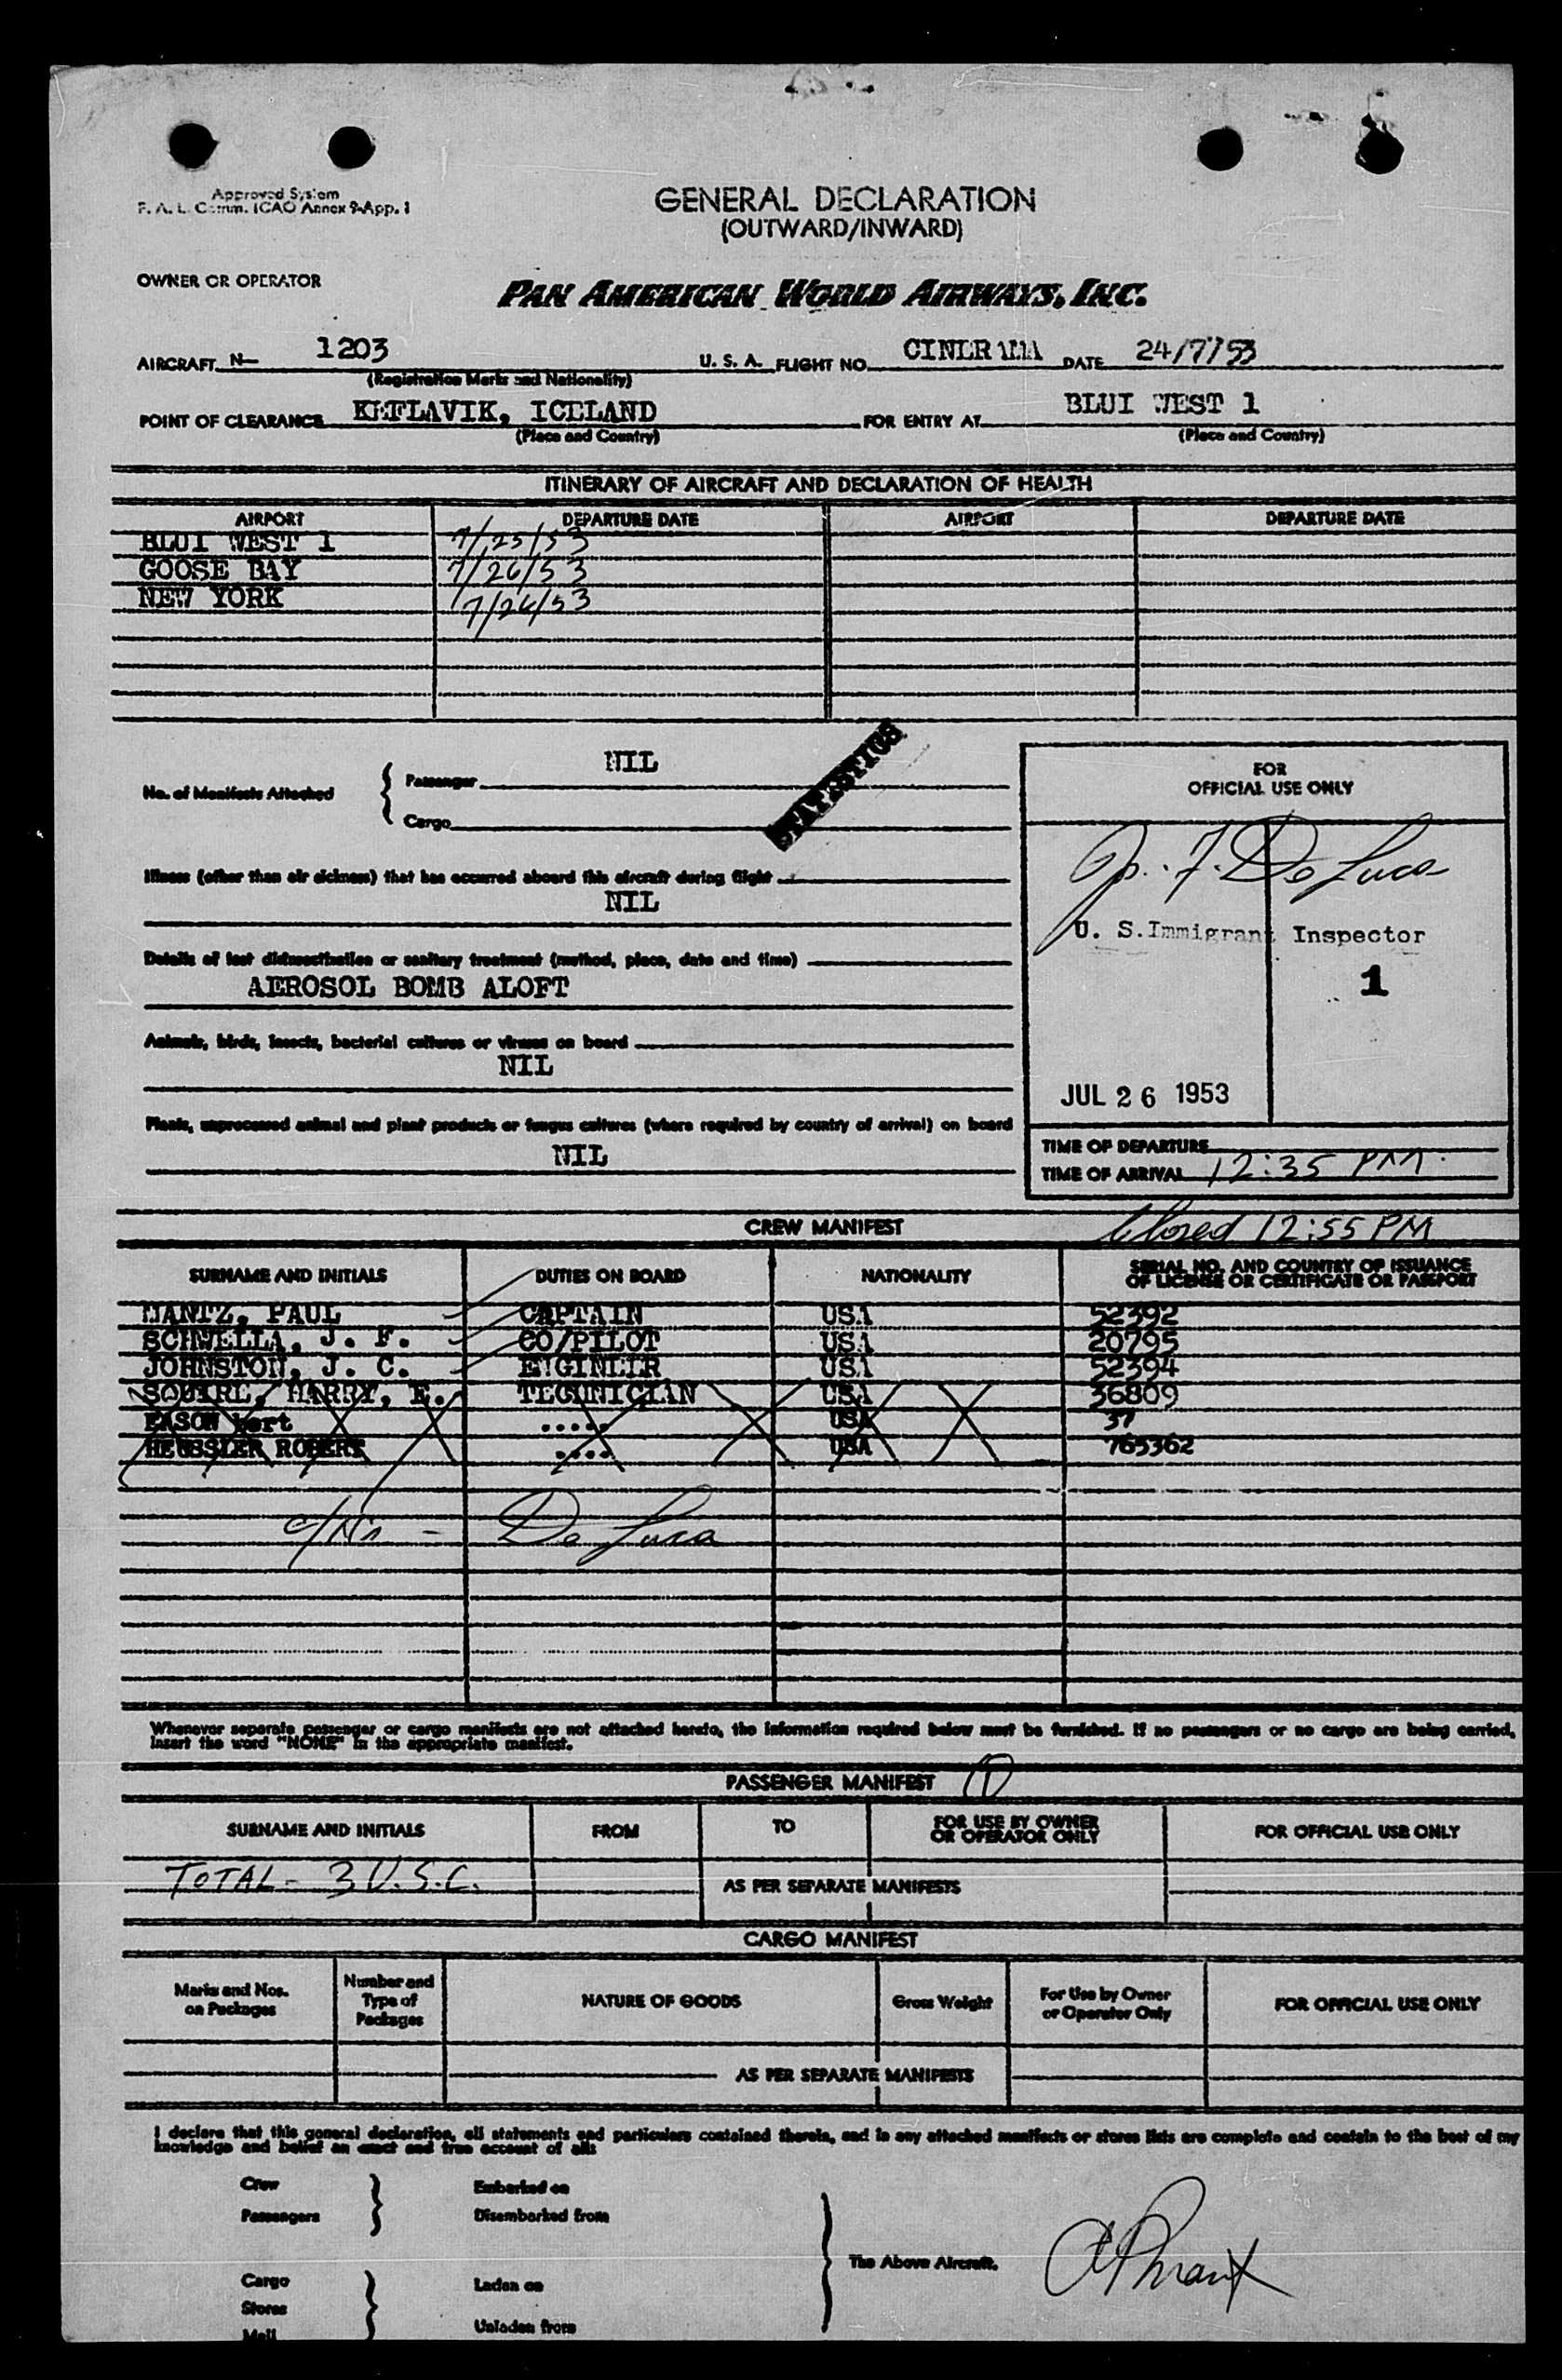 Approved System
F. A. L. Comm. ICAO Annex 9-App. 1
GENERAL DECLARATION
(OUTWARD/INWARD)
OWNER OR OPERATOR
PAN AMERICAN WORLD AIRWAYS, INC.
AIRCRAFT N— 1203 U. S. A. FLIGHT NO. CINERAMA DATE 24/7/53
(Registration Marks and Nationality)
POINT OF CLEARANCE KEFLAVIK, ICELAND FOR ENTRY AT BLUI WEST 1
(Place and Country) (Place and Country)
ITINERARY OF AIRCRAFT AND DECLARATION OF HEALTH
AIRPORT DEPARTURE DATE AIRPORT DEPARTURE DATE
BLUI WEST 1 7/25/53
GOOSE BAY 7/26/53
NEW YORK 7/26/53
STATISTICS
No. of Manifests Attached
Passenger NIL
Cargo
Illness (other than air sickness) that has occurred aboard this aircraft during flight
NIL
Details of last disinsectization or sanitary treatment (method, place, date and time)
AEROSOL BOMB ALOFT
Animals, birds, insects, bacterial cultures or viruses on board
NIL
Plants, unprocessed animal and plant products or fungus cultures (where required by country of arrival) on board
NIL
FOR
OFFICIAL USE ONLY
F. De Luca
U. S. Immigrant Inspector
1
JUL 26 1953
TIME OF DEPARTURE
TIME OF ARRIVAL 12:35 PM.
CREW MANIFEST Closed 12:55 PM
SURNAME AND INITIALS DUTIES ON BOARD NATIONALITY SERIAL NO. AND COUNTRY OF ISSUANCE
OF LICENSE OR CERTIFICATE OR PASSPORT
MANTZ, PAUL CAPTAIN USA 52392
SCHWELLA, J. F. CO/PILOT USA 20795
JOHNSTON, J. C. ENGINEER USA 52394
SQUIRE, HARRY, E. TECHNICIAN USA 36809
EASON bert ..... USA 37
HEUBSLER ROBERT .... USA 765362
De Luca
Whenever separate passenger or cargo manifests are not attached hereto, the information required below must be furnished. If no passengers or no cargo are being carried,
insert the word "NONE" in the appropriate manifest.
PASSENGER MANIFEST 1
SURNAME AND INITIALS FROM TO FOR USE BY OWNER
OR OPERATOR ONLY FOR OFFICIAL USE ONLY
TOTAL - 3 U.S.C.
AS PER SEPARATE MANIFESTS
CARGO MANIFEST
Marks and Nos.
on Packages
Number and
Type of
Packages
NATURE OF GOODS
Gross Weight
For Use by Owner
or Operator Only
FOR OFFICIAL USE ONLY
AS PER SEPARATE MANIFESTS
I declare that this general declaration, all statements and particulars contained therein, and in any attached manifests or stores lists are complete and contain to the best of my
knowledge and belief an exact and true account of all:
Crew Embarked on
Passengers Disembarked from
The Above Aircraft.
Cargo Laden on
Stores
Mail Unladen from